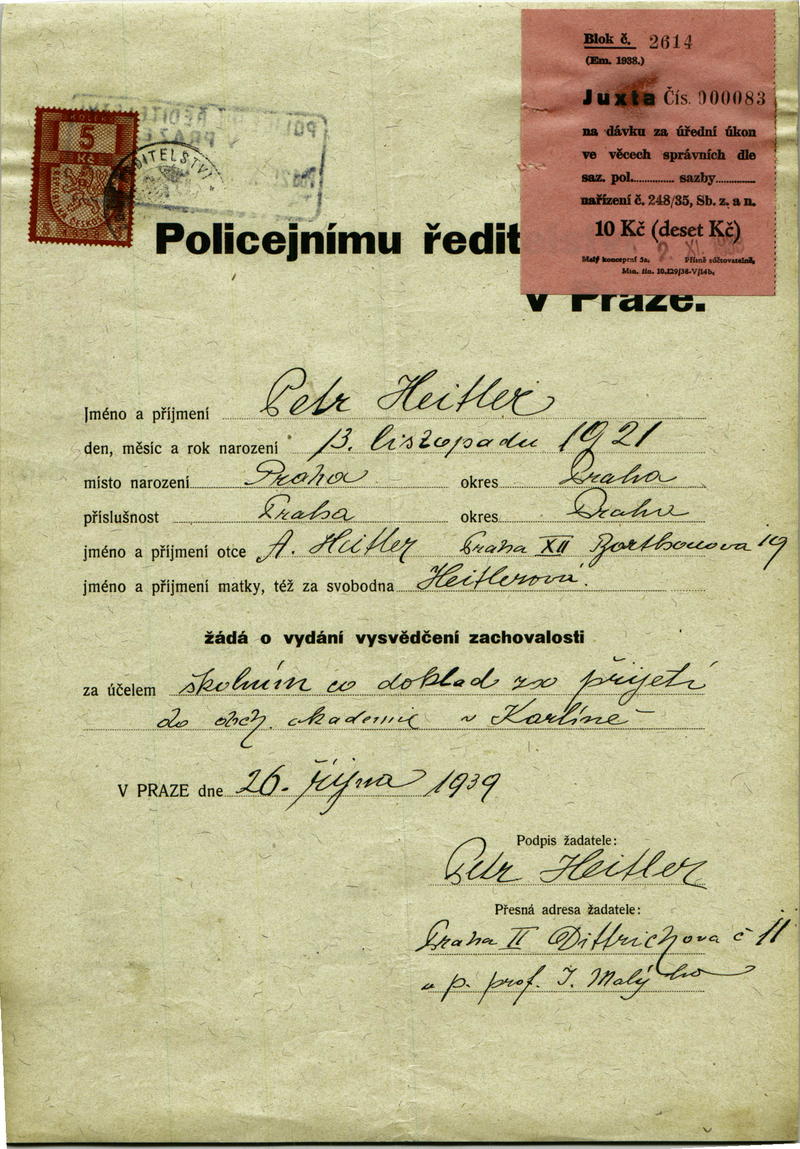 Blok č. 2614
(Em. 1938.)
Juxta Čís. 000083
na dávku za úřední úkon
ve věcech správních dle
saz. pol. sazby
nařízení č. 248/35, Sb. z. a n.
10 Kč (deset Kč)
Malý koncepní 3a. Přísně zúčtovatelné.
Min. fin. 10.129/38-V/14b.
KOLEK
5
Kč
ŘEDITELSTVÍ
Policejnímu ředit
v Praze.
Jméno a příjmení Petr Heitler
den, měsíc a rok narození 13. listopadu 1921
místo narození Praha okres Praha
příslušnost Praha okres Praha
jméno a příjmení otce A. Heitler Praha XII 19
jméno a příjmení matky, též za svobodna Heitlerová.
žádá o vydání vysvědčení zachovalosti
za účelem školním co doklad za přijetí
do obch. akademie v Karlíně
V PRAZE dne 26. října 1939
Podpis žadatele:
Petr Heitler
Přesná adresa žadatele:
Praha II Dittrichova č 11
u p. prof. I. Malýho